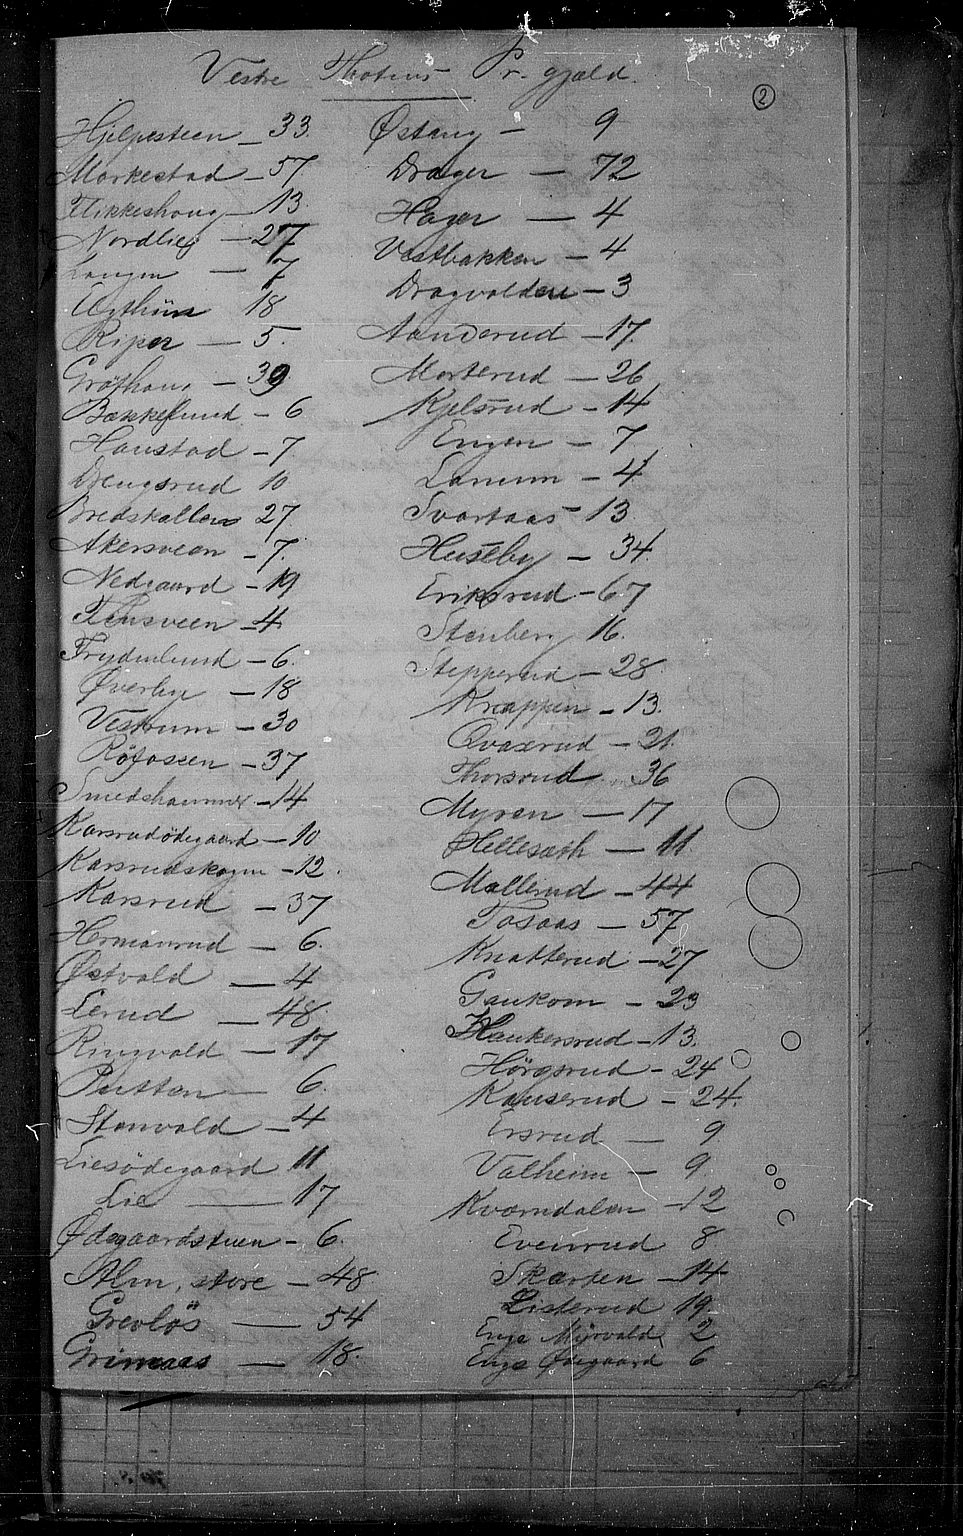 Vestre Thotens Pr. gjæld.
2
Hjelpesteen - 33.
Markestad - 57
Flikkeshoug - 13
Nordlieg - 27
Langen - 7
Ægthün 18
Riper - 5.
Gröthoug - 39
Bækkelund - 6
Haustad - 7.
Drengsrud 10
Bredskallen 27
Akersveen - 7.
Nedgaard - 19
Tønsveen - 4
Frydenlund - 6.
Øverby - 18
Vestrum - 30
Röfossen - 37
Smedshammer - 14
Karsrudödegaard - 10
Karsrudskogen - 12.
Karsrud - 37
Hermanrud - 6.
Østvold - 4
Lerud - 48.
Ringvold - 17
Putten - 6.
Stenvold - 4
Liesödegaard 11
Lie - 17
Ødegaardstuen - 6.
Alm, store - 48
Grevlös - 54
Grimaas - 18.
Østeng - 9
Drager - 72
Hager - 4
Vestbakken - 4
Dragvolden - 3
Aanderud - 17.
Morterud - 26
Kjelsrud - 14
Engen - 7
Lanum - 4
Svartaas 13
Huseby - 34.
Eriksrud - 67
Stenberg 16.
Stepperud - 28.
Knappen - 13.
Qvaserud - 21.
Thorsrud 36
Myren - 17
Hellesæth - 11
Mællerud - 44
Tosaas - 57
Knatterud - 27
Gaukom - 23
Haukersrud - 13.
Hörgsrud - 24
Kauserud - 24.
Ersrud - 9
Valheim - 9
Kværndalen - 12
Evenrud 8
Skarten - 14
Listerud 19.
Enge Myrvold 2
Enge Ødegaard 6